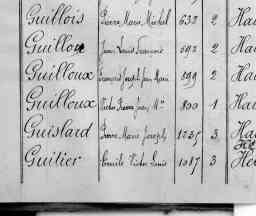 Guillois Pierre Marie Michel 632 2 Hau
Guilloux Jean Louis François 692 2 Ha
Guilloux François Joseph Jean Marie 899 2 Ha
Guilloux Victor Pierre Jean Mie 800 1 Hau
Guislard Pierre Marie Joseph 1035 3 Ha
Guitier Emile Victor Louis 1087 3 He